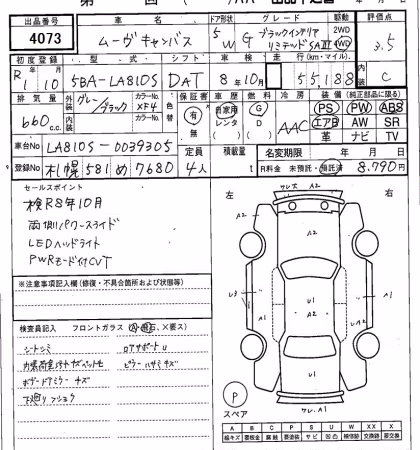 出品番号 車名 ドア形状 グレード 駆動 評価点
4073 ムーヴキャンバス 5W G ブラックインテリアリミテッドSAⅢ 2WD 4WD 3.5
初度登録 型式 シフト 車検 走行(km・マイル) 内装
R1年10月 5BA-LA810S DAT 8年10月 55,188 C
排気量 外装色 グレー/ブラック カラーNo. XF4 カラーNo. 色替 保証書 車歴 燃料 冷房 装備(純正部品に限る)
660c.c. 有 無 自家用 レンタ G D AAC PS PW ABS
エアB AW SR
革 ナビ TV
車台No LA810S-0039305 定員 積載量 名変期限 年 月 日
登録No 札幌581め7680 4人 t R料金 未預託・預託済 8,790円
セールスポイント 左 右
検R8年10月
両側パワースライド
LEDヘッドライト
PWRモード付CVT
※注意事項記入欄(修復・不具合箇所および状態等)
検査員記入 フロントガラス
シートシミ ロアサポートU
ピラーハザミキズ
ボードアミラーキズ
下廻りフショク
A2 A2 U3 A1 U1 A2 A1 U1
P
スペア
A B C P S U W XX X
線キズ 要板金 腐蝕 要塗装 サビ 凹凸 補修跡 交換跡 要交換